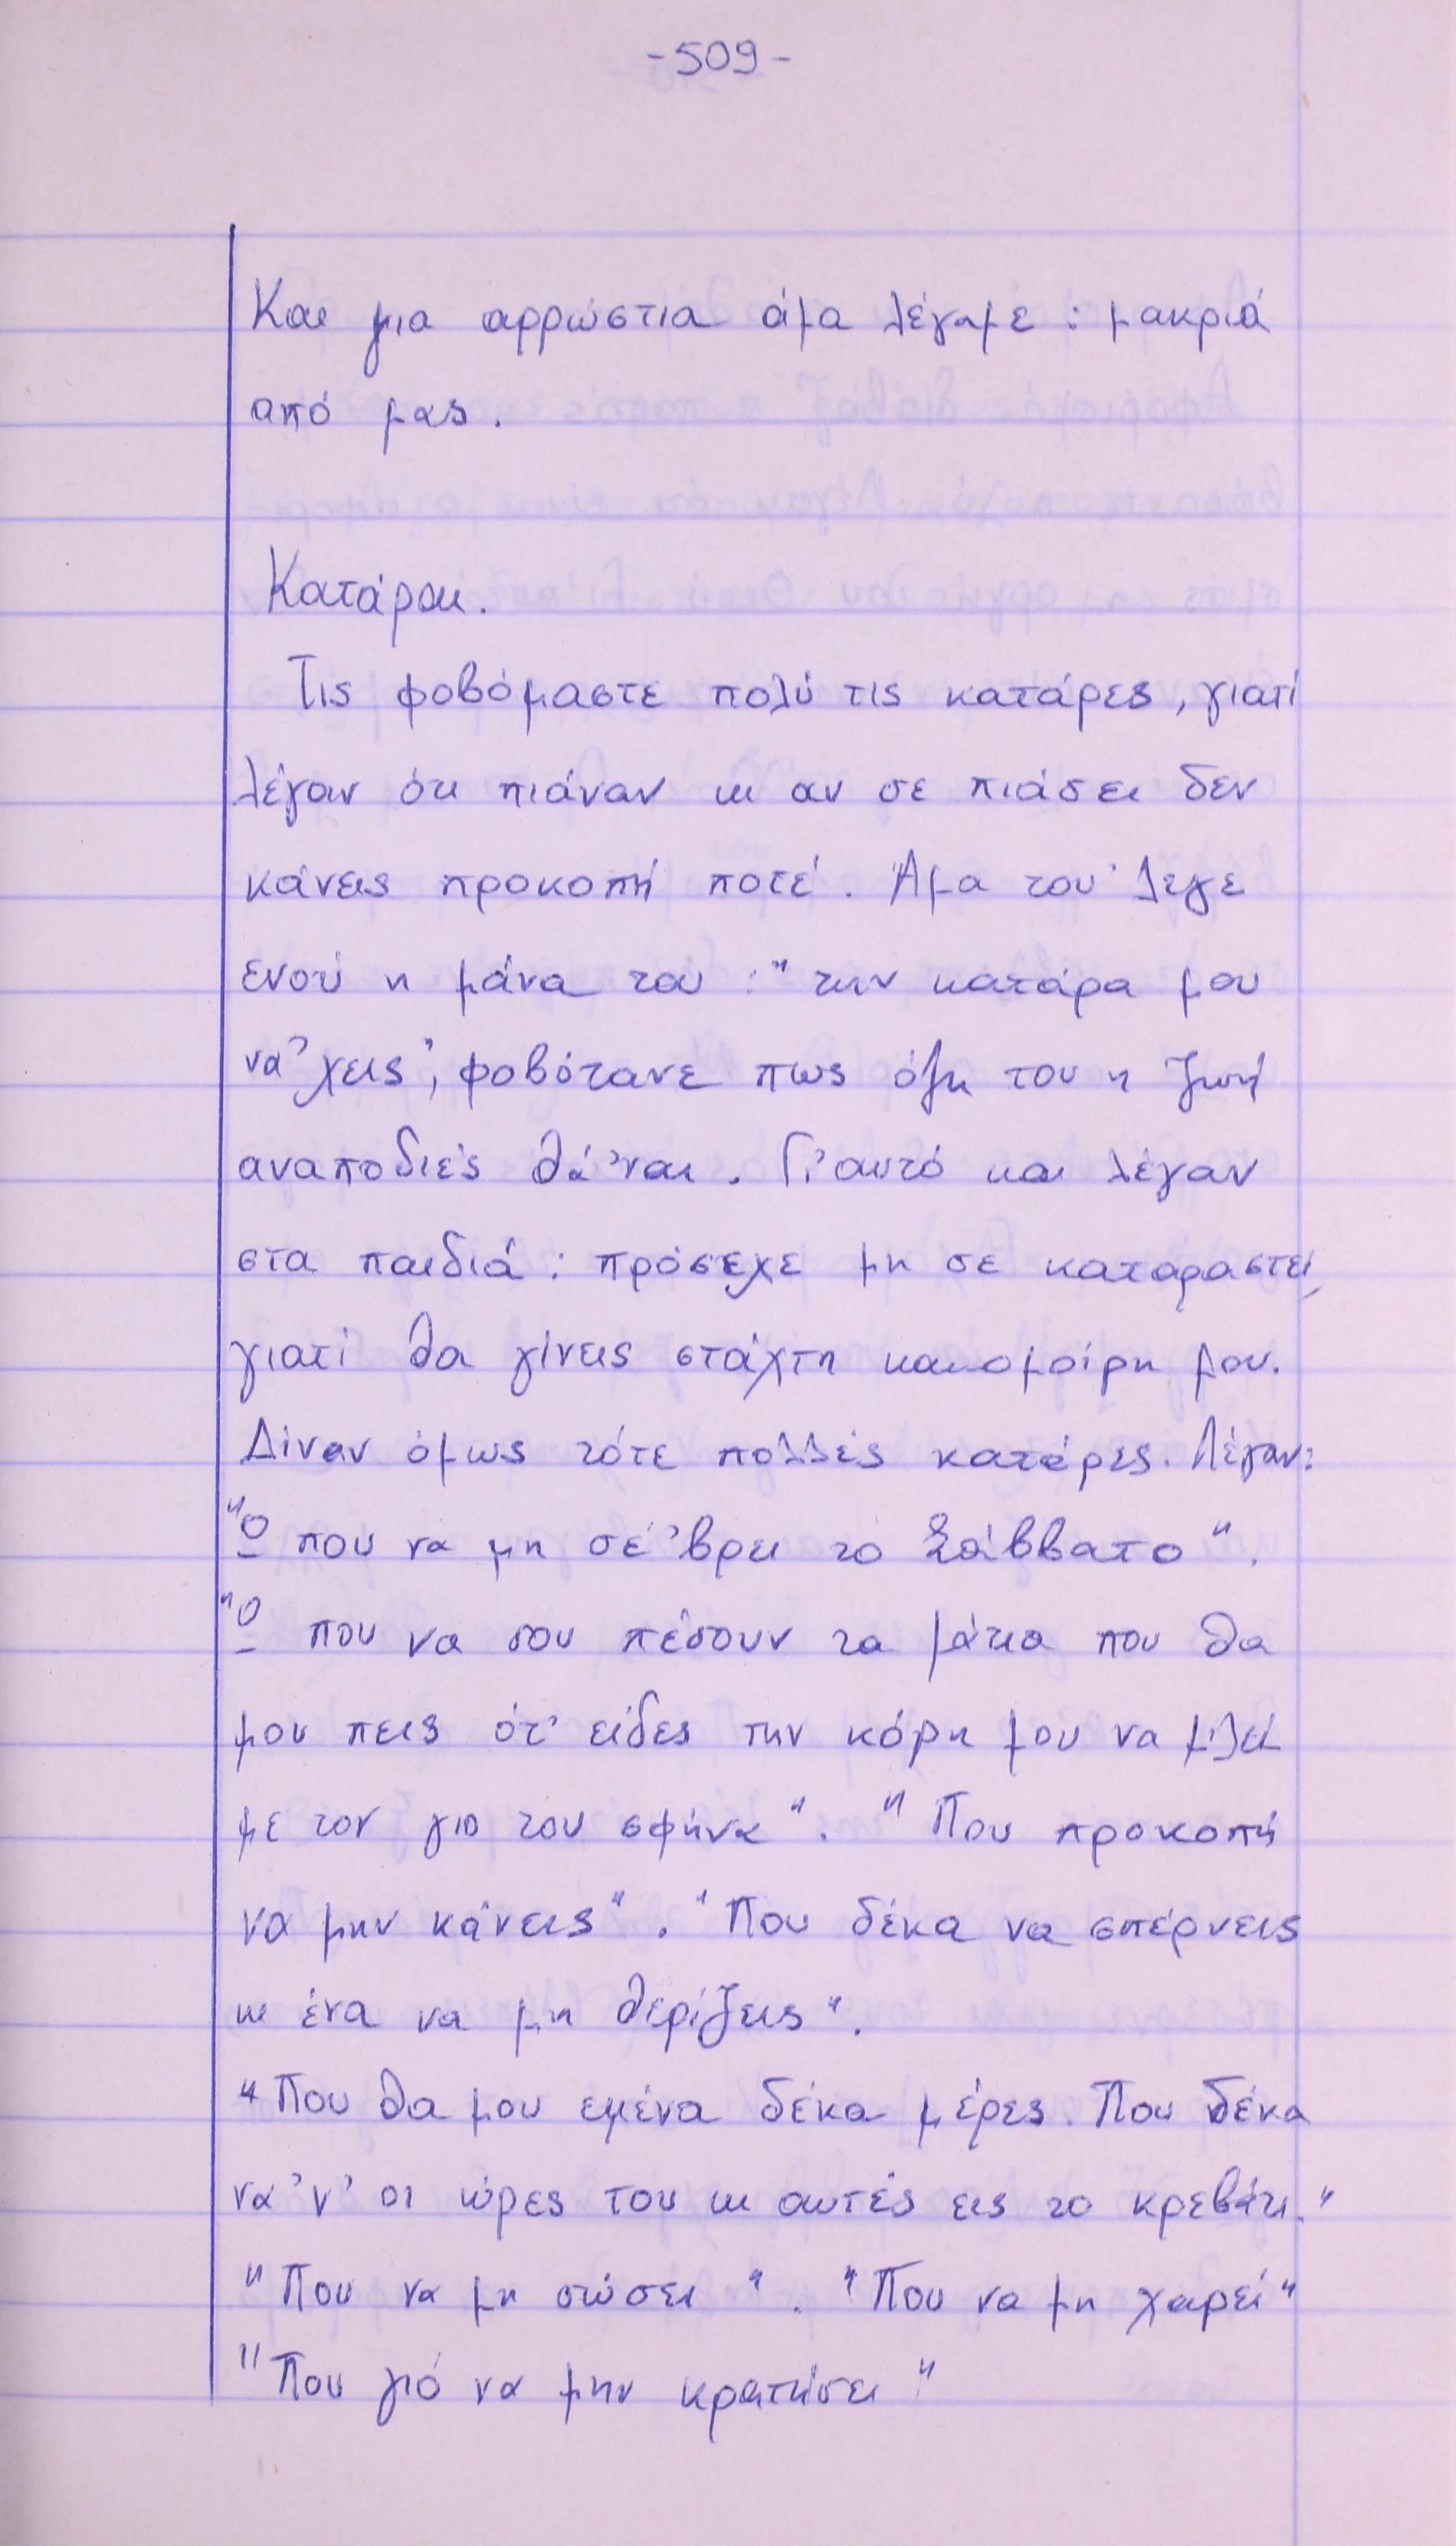 -509-
Και μια αρρώστια άμα λέγαμε : μακριά
από μας.
Κατάραι.
Τις φοβόμαστε πολύ τις κατάρες, γιατί
λέγαν ότι πιάναν κι αν σε πιάσει δεν
κάνεις προκοπή ποτέ. Άμα του λεγε
ενού η μάνα του : "την κατάρα μου
να 'χεις", φοβότανε πως όλη του η ζωή
αναποδιές θά 'ναι. Γι' αυτό και λέγαν
στα παιδιά : πρόσεχε μη σε καταραστεί,
γιατί θα γίνεις στάχτη κακομοίρη μου.
Δίναν όμως τότε πολλές κατάρες. Λέγαν:
"Ο που να μη σέ 'βρει το Σάββατο".
"Ο που να σου πέσουν τα μάτια που θα
μου πεις ότ' είδες την κόρη μου να μιλεί
με τον γιο του σφήνα". "Που προκοπή
να μην κάνεις". "Που δέκα να σπέρνεις
κι ένα να μη θερίζεις".
"Που θα μου εμένα δέκα μέρες. Που δέκα
να 'ν' οι ώρες του κι αυτές εις το κρεβάτι."
"Που να μη σώσει". "Που να μη χαρεί"
"Που γιό να μην κρατήσει"